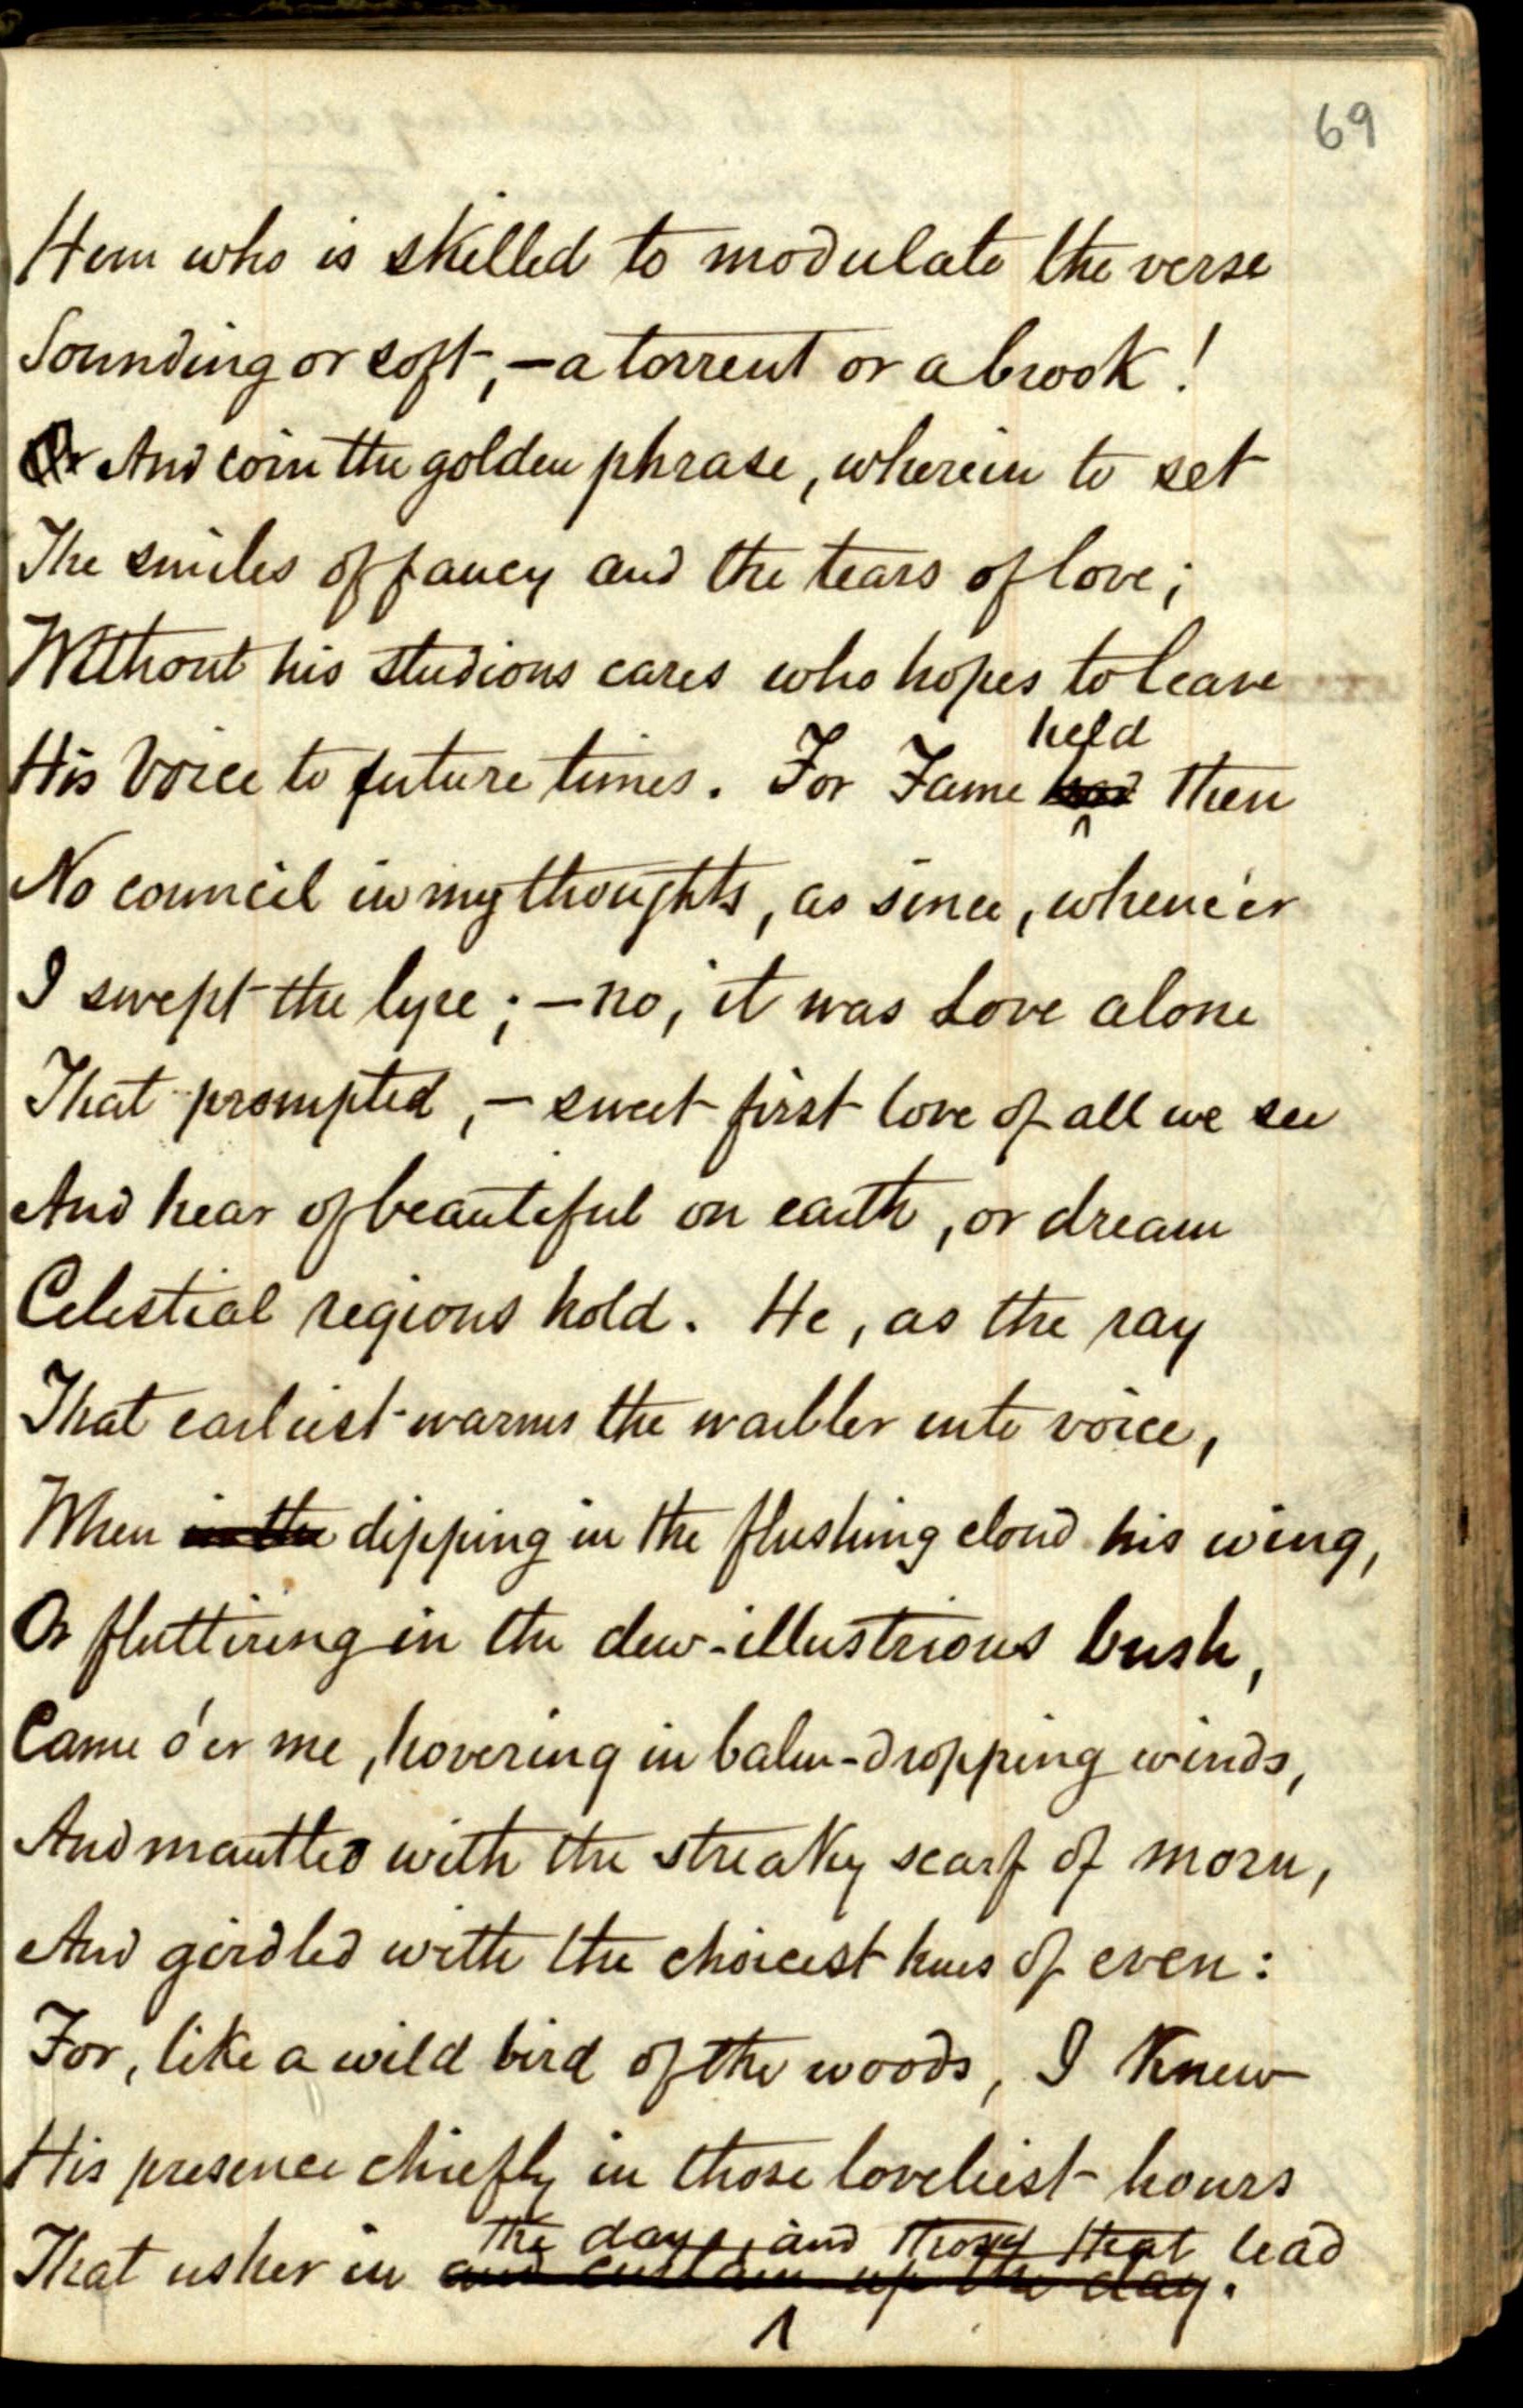 69
Him who is skilled to modulate the verse
Sounding or soft, – a torrent or a brook!
Or And coin the golden phrase, wherein to set
The smiles of fancy and the tears of love;
Without his studious cares who hopes to leave
held
His Voice to future times. For Fame had then
No council in my thoughts, as since, whene'er
I swept the lyre; – no, it was Love alone
That prompted, – sweet first love of all we see
And hear of beautiful on earth, or dream
Celestial regions hold. He, as the ray
That earliest warms the warbler into voice,
When in the dipping in the flushing cloud his wing,
Or fluttering in the dew-illustrious bush,
Came o'er me, hovering in balm-dropping winds,
And mantled with the streaky scarf of morn,
And girdled with the choicest hues of even:
For, like a wild bird of the woods, I Knew
His presence chiefly in those loveliest hours
the day, and those that lead
That usher in and curtain up the day.